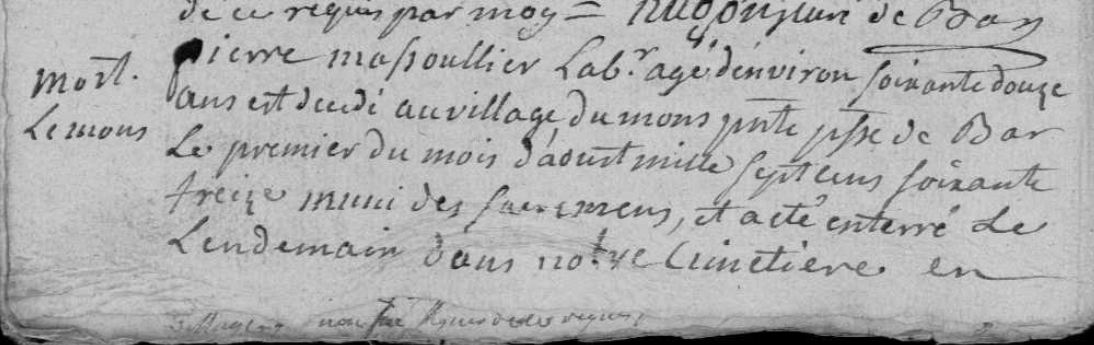 de ce requis par moy = hugon curé de Bar
mort.
Lemons
pierre massoullier Labr. agé d'environ soixante douze
ans est decedé au village du mons pnte psse de Bar
Le premier du mois d'aoust mille sept cens soixante
treize muni des sacremens, et a eté enterré Le
Lendemain dans notre Cimetiere en
non sac de ce requis